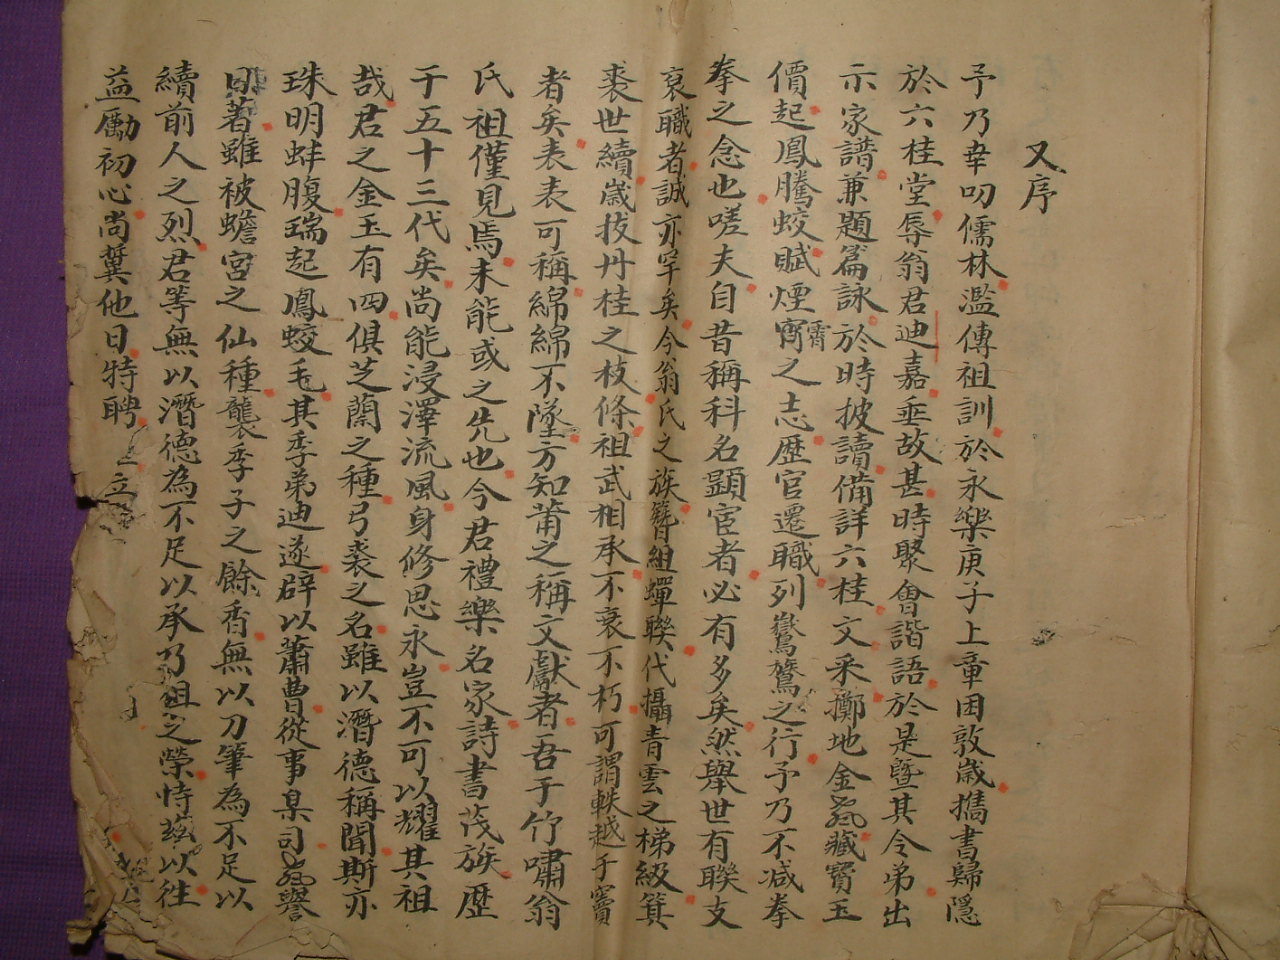 又序
予乃幸叨儒林濫傳祖訓於永樂庚子上章困敦歲攜書歸隱
於六桂堂辱翁君迪嘉垂故甚時聚會諧語於是暨其令弟出
示家譜兼題篇詠於時披讀備詳六桂文采擲地金聲藏寶玉
價起鳳騰蛟賦煙霄之志歷官遷職列鴛鷺之行予乃不減拳
拳之念也嗟夫自昔稱科名顯宦者必有多矣然舉世有聯支
袞職者誠亦罕矣今翁氏之族簪組蟬聯代攝青雲之梯級箕
裘世續歲拔丹桂之枝條祖武相承不衰不朽可謂軼越于竇
者矣表表可稱綿綿不墜方知莆之稱文獻者吾于竹嘯翁
氏祖僅見焉未能或之先也今君禮樂名家詩書茂族歷
千五十三代矣尚能浸澤流風身修思永豈不可以耀其祖
哉君之金玉有四俱芝蘭之種弓裘之名雖以潛德稱聞斯亦
珠明蚌腹瑞起鳳蛟毛其季弟迪遂辟以蕭曹從事臬司聲譽
著雖被蟾宮之仙種襲季子之餘香無以刀筆為不足以
續前人之烈君等無以潛德為不足以承乃祖之榮恃茲以往
益勵初心尚冀他日特聘 立